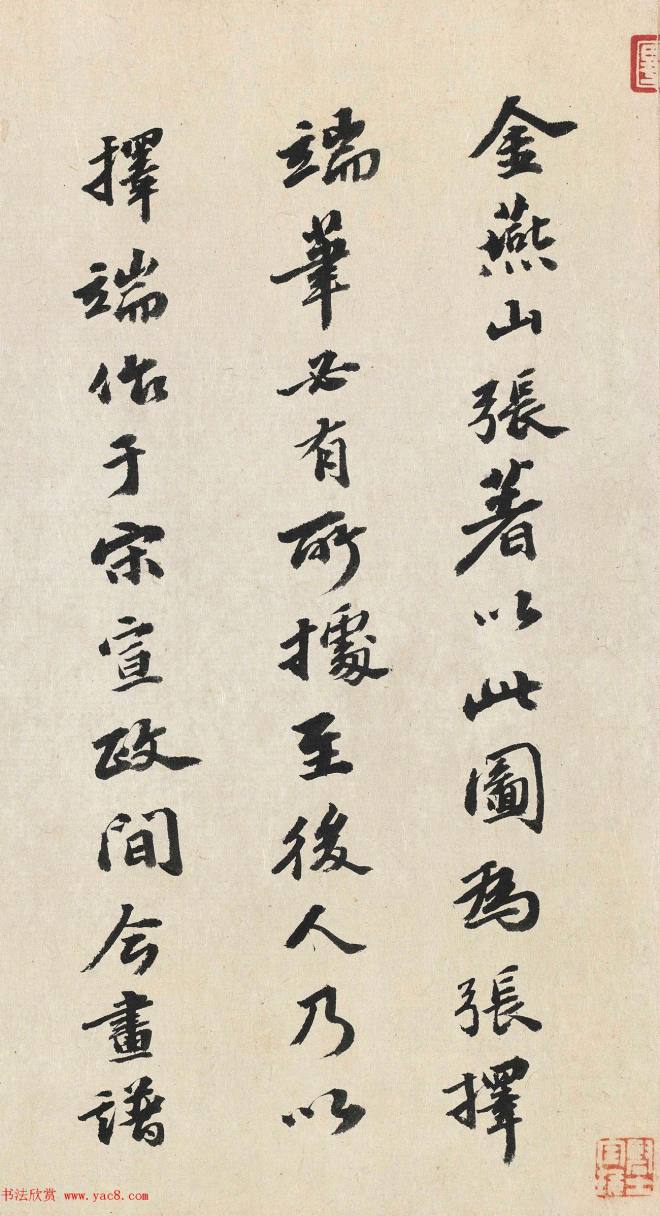 金燕山張著以此圖為張擇
端筆必有所據至後人乃以
擇端作于宋宣政間今畫譜
书法欣赏 www.yac8.com